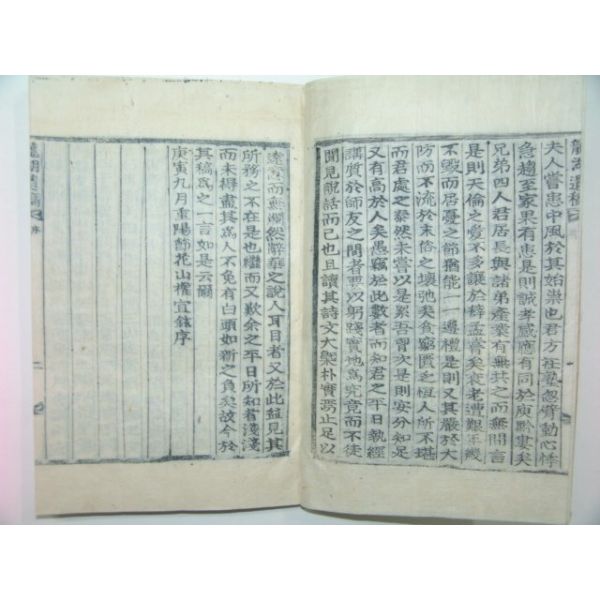 龍湖遺稿 序
夫人嘗患中風於其始祟也君方在塾忽臂動心悸
急趨至家果有患是則誠孝感應有同於庾黔婁矣
兄弟四人君居長與諸弟產業有無共之而無間言
是則天倫之愛不多讓於薛孟嘗矣衰老遭艱不級
不毀而居憂之節猶能一一遵禮是則又其嚴於大
防而不流於末俗之壞弛矣食窮匱乏恒人所不堪
而君處之泰然未嘗以是累吾胷次是則安分知足
又有高於人矣愚竊於此數者而知君之平日執經
講質於師友之間者要以躬踐實地爲究竟而不徒
聞見說話而已也且讀其詩文大槩朴實焉止足以
達意而無爛然辭華之說人耳目者又於此益見其
所務之不在是也繼而又歎余之平日所知者淺淺
而未得盡其爲人不免有白頭如新之負矣故今於
其稿爲之一言如是云爾
庚寅九月重陽節花山權宜銖序
龍湖遺稿 序
二